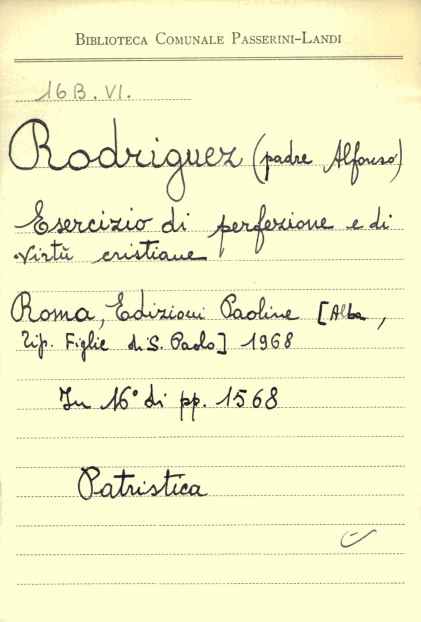 BIBLIOTECA COMUNALE PASSERINI-LANDI
16 B. VI.
Rodriguez (padre Alfonso)
Esercizio di perfezione e di
virtù cristiane
Roma, Edizioni Paoline [Alba,
Tip. Figlie di S. Paolo] 1968
In 16° di pp. 1568
Patristica